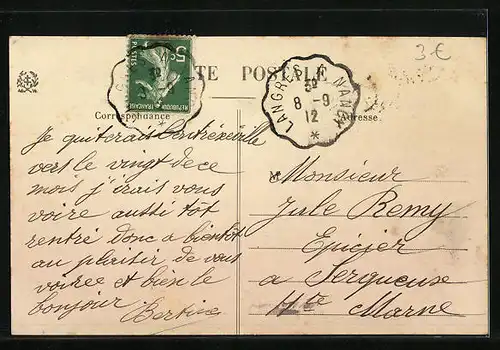 3€
CARTE POSTALE
Correspondance
Adresse
5
POSTES
REPUBLIQUE FRANÇAISE
LANGRES À NANCY
3E
8 -9
12
*
Je quiterais Contréxéville
vers le vingt de ce
mois j'irais vous
voire aussi tôt
rentré donc a bientôt
au plaisir de vous
voiree et bien le
bonjour
Bertine
Monsieur
Jule Remy
Epicier
a Serqueuse
Hte Marne